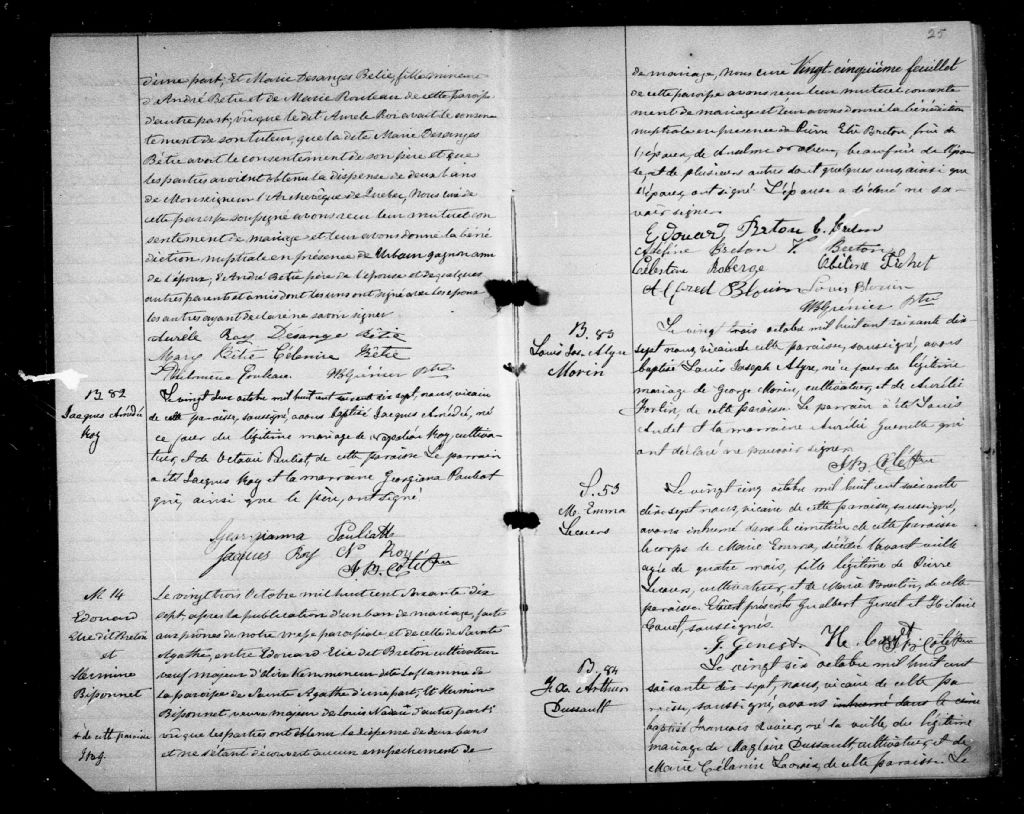 d'une part; Et Marie Desanges Bétie, fille mineure
d'André Betie et de Marie Rouleau de cette paroisse
d'autre part; vu que le dit Aurele Roi avait le consen-
tement de son tuteur, que la dite Marie Desanges
Bétie avoit le consentement de son père et que
les parties avoient obtenu la dispense de deux bans
de Monseigneur l'Archevêque de Quebec, Nous curé de
cette paroisse soussigné avons reçu leur mutuel con
sentement de mariage et leur avons donné la béné
diction nuptiale en présence de Urbain Gagnon ami
de l'époux, d'André Betie père de l'épouse et de quelques
autres parents et amis dont les uns ont signé avec les epoux
les autres ayant declaré ne savoir signer
Aurèle Roy Désange Bétie
Mary Bétie Célanire Bétie
Philomène Rouleau NB Grénier Ptre
B. 82
Jacques Amédé
Roy
Le vingt deux octobre mil huit cent soixante dix sept, nous, vicaire
de cette paroisse, soussigné, avons baptisé Jacques Amédé, né
ce jour du légitime mariage de Napoléon Roy, cultiva-
teur, et de Octavie Pouliot, de cette paroisse. Le parrain
a été Jacques Roy et la marraine Georgiana Pouliot
qui, ainsi que le père, ont signé
Georgianna Pouliotte
Jacques Roy Nn Roy
J. B. Côté Ptre
M. 14
Edouard
Elie dit Breton
et
Hermine
Bissonnet
+ de cette paroisse
Le vingt trois Octobre mil huit cent soixante dix
sept, apres la publication d'un ban de mariage, faite
aux prones de notre messe paroissiale et de celle de Sainte
Agathe, entre Edouard Elie dit Breton cultivateur
veuf majeur d'
la paroisse de Sainte Agathe d'une part; et Hermine
Bissonnet, veuve majeur de Louis Nadeau d'autre part;
vu que les parties ont obtenu la dispense de deux bans
et ne s'étant découvert aucun empêchement de
25
de mariage, Nous curé Vingt-cinquième feuillet
de cette paroisse avons reçu leur mutuel consente
ment de mariage et leur avons donné la bénédiction
nuptiale en presence de Pierre Elie Breton frère de
l'époux, de Anselme , beau frère de l'épou
se, et de plusieurs autres dont quelques uns, ainsi que
l'époux, ont signé. L'épouse a déclaré ne sa-
voir signer.
Edouard Breton E. Breton
Adelfine Breton F. Breton
Célestine Roberge Obéline Fichet
Alfred Blouin Louis Blouin
NB Grénier Ptre
B. 83
Louis Jos. Alyre
Morin
Le vingt trois octobre mil huit cent soixante dix
sept nous, vicaire de cette paroisse, soussigné, avons
baptisé Louis Joseph Alyre, né ce jour du légitime
mariage de George Morin, cultivateur, et de Aurélie
Fortin, de cette paroisse. Le parrain a été Louis
Audet et la marraine Aurélie Guenette qui
ont déclaré ne pouvoir signer.
J. B. Côté Ptre
S. 53
M. Emma
Lecours
Le vingt cinq octobre mil huit cent soixante
dix sept nous, vicaire de cette paroisse, soussigné,
avons inhumé dans le cimetière de cette paroisse
le corps de Marie Emma, décédée l'avant veille
agée de quatre mois, fille légitime de Pierre
Lecours, cultivateur, et de Marie Boutin, de cette
paroisse. Etaient présents Gualbert Genest et Hilaire
Couet, soussignés.
G. Genest H. Couet J B Côté Ptre
B. 84
F. X. Arthur
Dussault
Le vingt six octobre mil huit cent
soixante dix sept, nous, vicaire de cette pa-
roisse, soussigné, avons inhumé dans le cime
baptisé François Xavier, né la veille du légitime
mariage de Magloire Dussault, cultivateur, et de
Marie Célanire Lacroix, de cette paroisse. Le